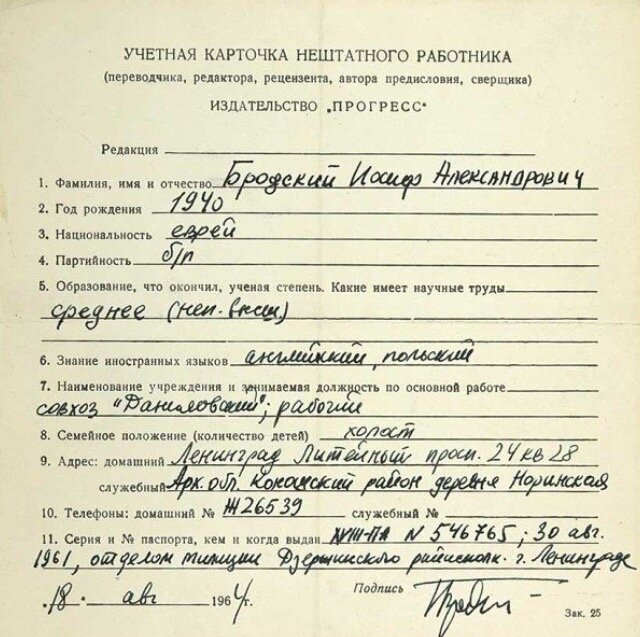 УЧЕТНАЯ КАРТОЧКА НЕШТАТНОГО РАБОТНИКА
(переводчика, редактора, рецензента, автора предисловия, сверщика)
ИЗДАТЕЛЬСТВО „ПРОГРЕСС“
Редакция
1. Фамилия, имя и отчество Бродский Иосиф Александрович
2. Год рождения 1940
3. Национальность еврей
4. Партийность б/п
5. Образование, что окончил, ученая степень. Какие имеет научные труды
среднее (неп. высш)
6. Знание иностранных языков английский, польский
7. Наименование учреждения и занимаемая должность по основной работе
совхоз "Даниловский"; рабочий
8. Семейное положение (количество детей) холост
9. Адрес: домашний Ленинград Литейный просп. 24 кв 28
служебный Арх. обл. Коношский район деревня Норинская
10. Телефоны: домашний № Ж26539 служебный №
11. Серия и № паспорта, кем и когда выдан XVIII-ПА N 546765; 30 авг.
1961, отделом милиции Дзержинского райисполк. г. Ленинграде
18 авг 1964г. Подпись
Зак. 25